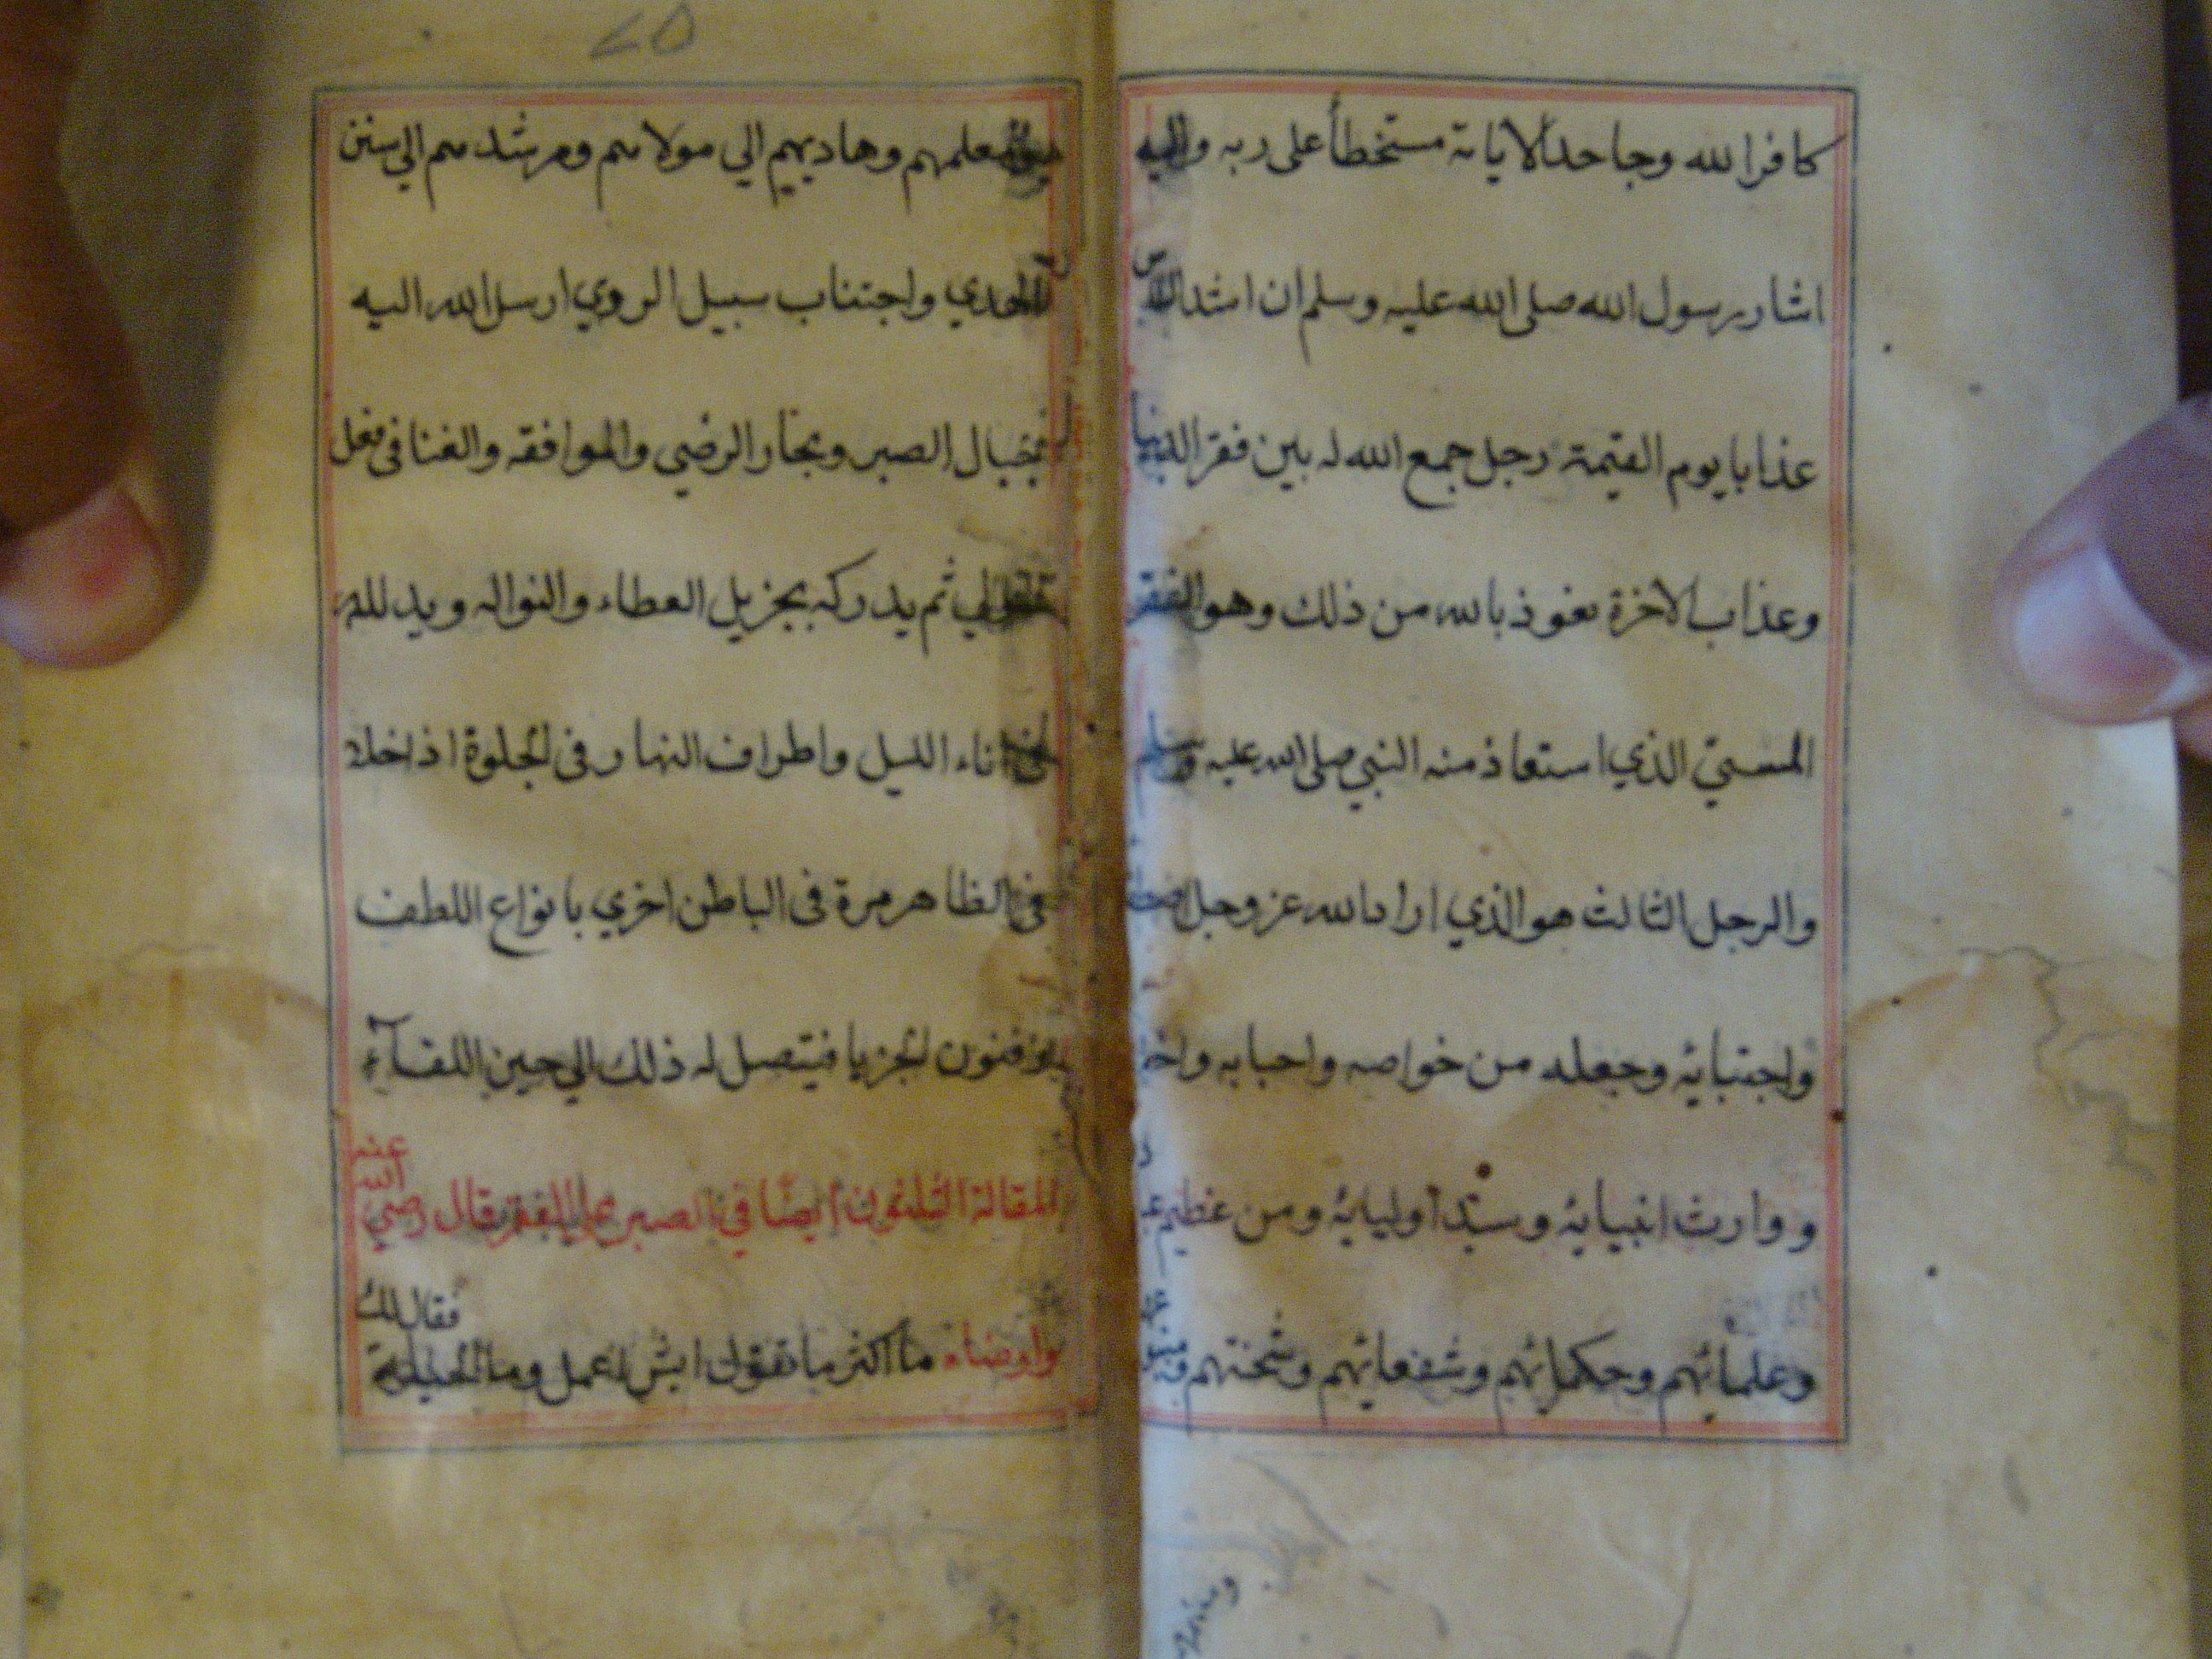 كافرا لله وجاحدا لاياته مستخطأ على ربه واليه
اشار رسول الله صلى الله عليه وسلم ان اشد الناس
عذابا يوم القيمة رجل جمع الله له بين فقر الدنيا
وعذاب الاخرة نعوذ بالله من ذلك وهو الفقر
المسيّ الذي استعاذ منه النبي صلى الله عليه وسلم
والرجل الثالث هو الذي اراد الله عز وجل
واجتبائه وجعله من خواصه واحبابه
ووارث انبيائه وسيّد اوليائه ومن عظيم
وعلمائهم وحكمائهم وشفعائهم وشحنتهم
٢٥
معلمهم وهاديهم الي مولاهم ومرشدهم الي سنن
الهدي واجتناب سبيل الروي ارسل الله اليه
جبال الصبر وبحار الرضي والموافقه والغنا في فعل
ثم يدركه بجزيل العطاء والنواله ويدلله
اناء الليل واطراف النهار في الجلوة اذا خلا
في الظاهر مرة في الباطن اخري بانواع اللطف
وفنون الجزيا فيتصل له ذلك الي حين اللقآء
المقالة الثلثون ايضًا في الصبر على الفقر قال رضي الله عنه
وارضاه ما اكثر ما تقول ايش اعمل وما الحيلة فقال لك